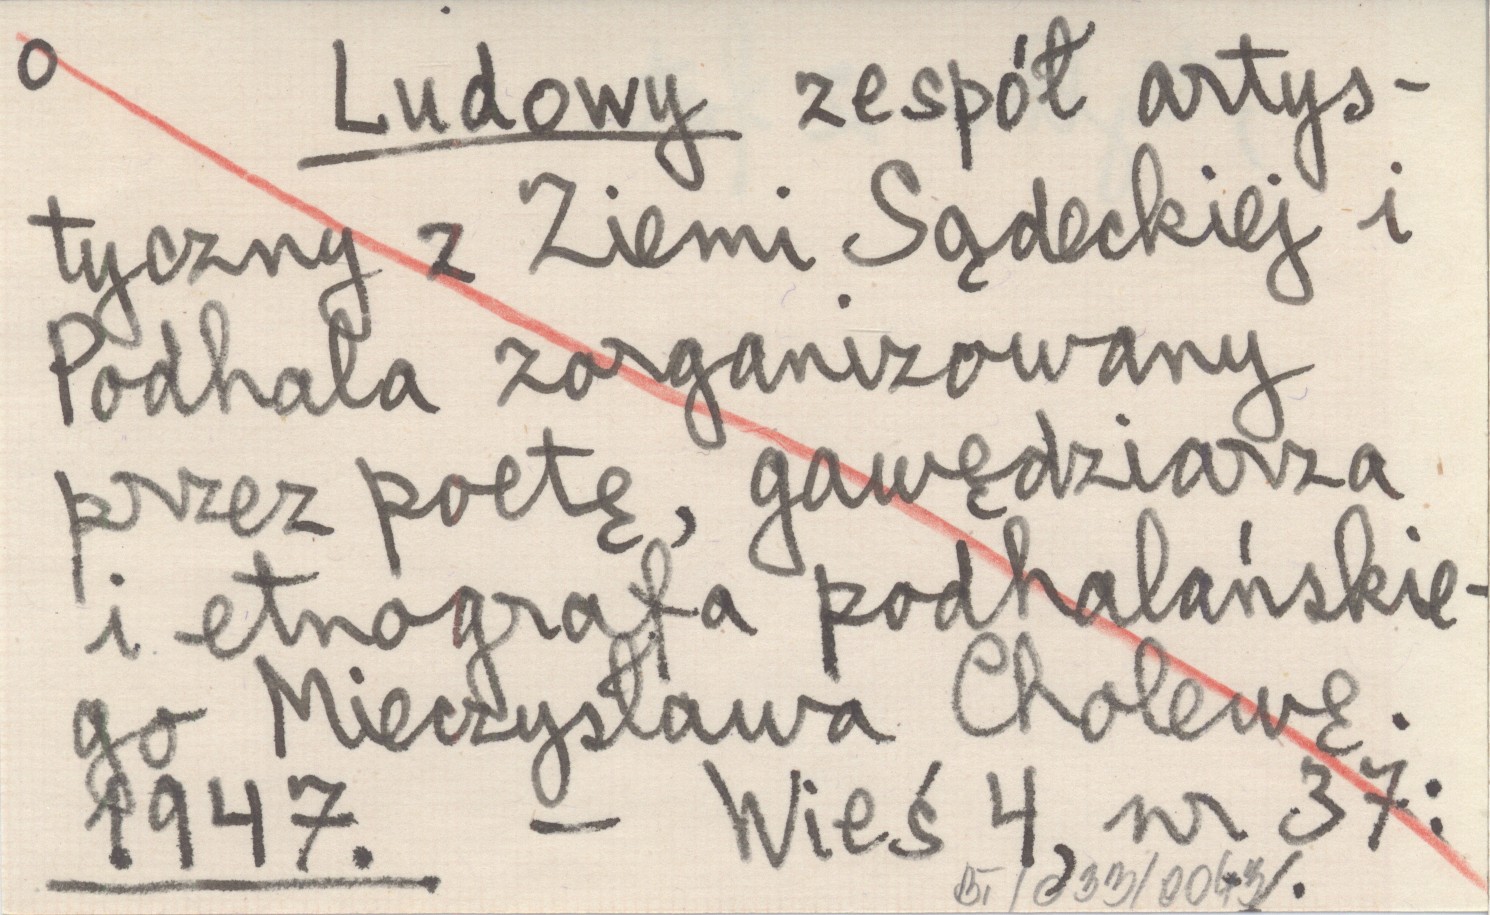 o Ludowy zespół artys-
tyczny z Ziemi Sądeckiej i
Podhala zorganizowany
przez poetę, gawędziarza
i etnografa podhalańskie-
go Mieczysława Cholewę.
1947. – Wieś 4, nr 37: